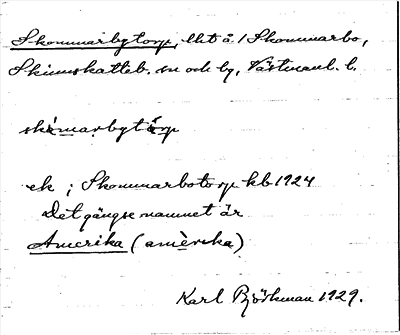 Skommarbytorp, lht å 1 Skommarbo,
Skinnskatteb. sn och by, Västmanl. l.
skòmarbytǿrp
ek ; Skommarbotorp kb 1924
Det gängse namnet är
Amerika (amèrika)
Karl Björkman 1929.